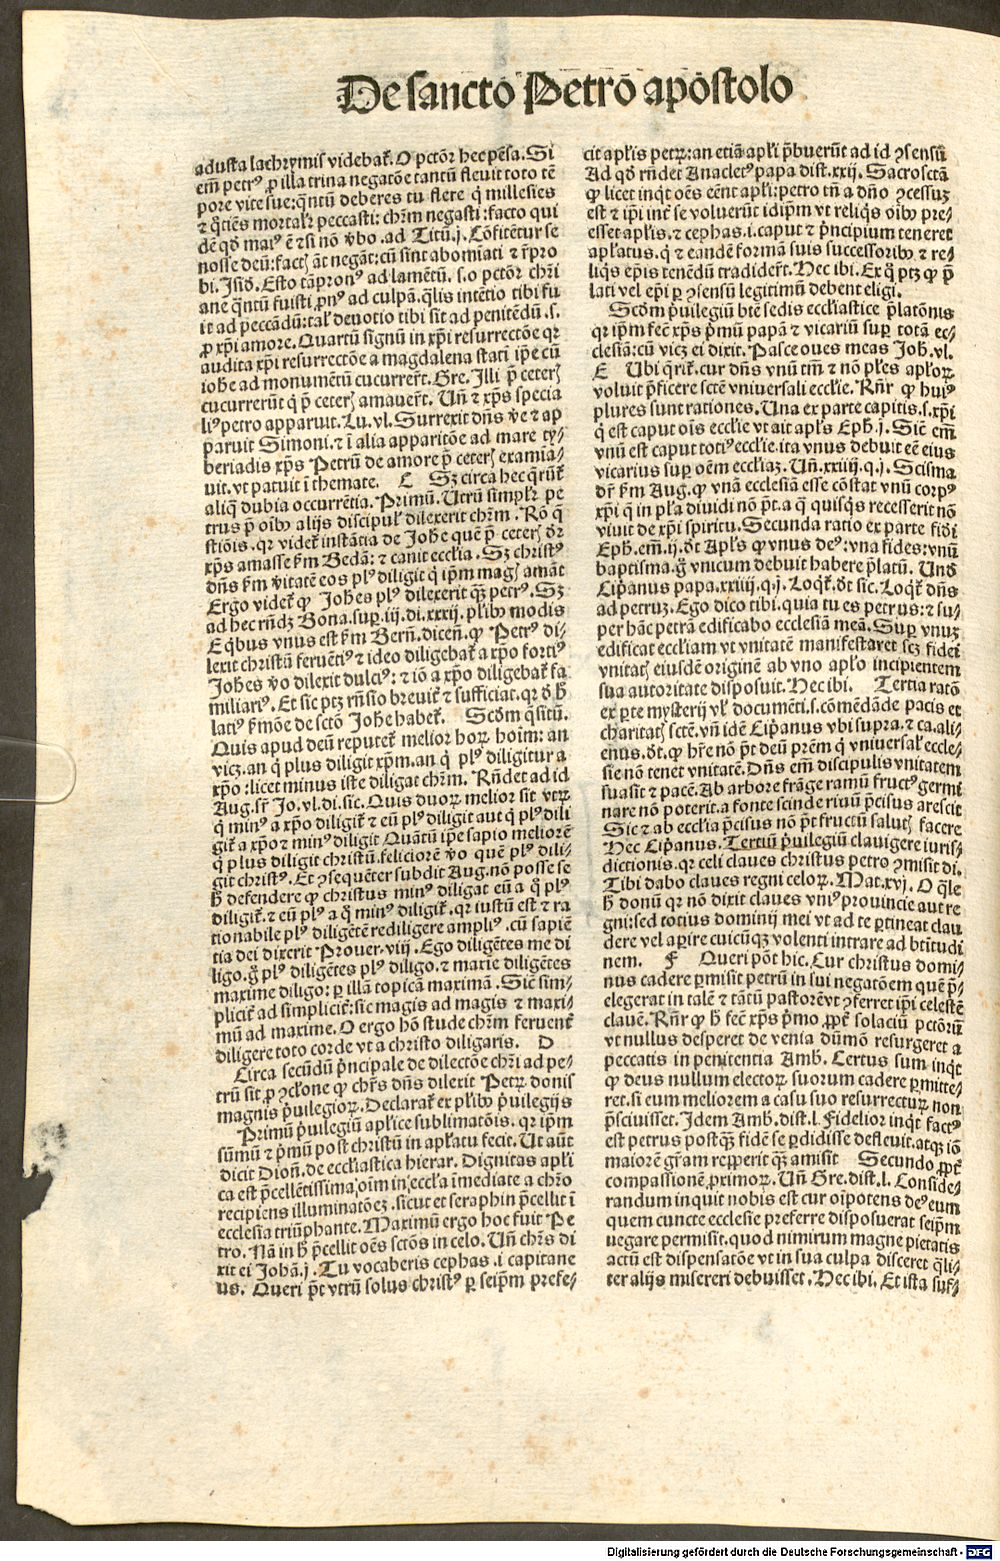 De sancto Petro apostolo
adusta lachrymis videbat᷑. O pctōr hec pēsa. Si
em̄ petrꝰ ꝓ illa trina negatōe tantū fleuit toto tē
pore vite sue: q̄ntū deberes tu flere q̇ millesies
⁊ q̄tiēs mortalr̄ peccasti: chr̄m negasti: facto qui
dē qd̄ maiꝰ ē ⁊ si nō v̄bo. ad Titū.j. Cōfitētur se
nosse deū: factꝭ āt negāt: cū sint abomīati ⁊ īcr̄pro
bi. Jsid̄. Esto tā pronꝰ ad lamētū. s. o pctōr chr̄i
ane q̄ntū fuisti ꝓnꝰ ad culpā. q̄lis intētio tibi fu
it ad peccādū: tal̄ deuotio tibi sit ad penitēdū. s.
ꝓ xp̄i amore. Quartū signū in xp̄i resurrectōe qr
audita xp̄i resurrectōe a magdalena statī ip̄e cū
iohe ad monumētū cucurrer̄t. Gre. Illi p̄ ceterꝭ
cucurrerūt q̇ p̄ ceterꝭ amauer̄t. Vn̄ ⁊ xp̄s specia
liꝰ petro apparuit. Lu. vl. Surrexit dn̄s v̄e ⁊ ap
paruit Simoni. ⁊ ī alia apparitōe ad mare ty⸗
beriadis xp̄s Petrū de amore p̄ ceterꝭ examīa⸗
uit. vt patuit ī themate. C Sꝫ circa hec q̄rūt᷑
aliq̄ dubia occurrētia. Primū. Utrū simpl̄r pe
trus p̄ oībꝰ alijs discipul̄ dilexerit chr̄m. Rō q̄
stiōis. qr videt᷑ instātia de Johe quē p̄ ceterꝭ dr̄
xp̄s amasse ẜm Bedā: ⁊ canit ecclīa. Sꝫ christꝰ
dn̄s ẜm v̄itatē eos plꝰ diligit q̇ ip̄m magꝭ amāt
Ergo videt᷑ ꝙ Johes plꝰ dilexerit qꝫ petrꝰ. Sꝫ
ad hec rn̄dꝫ Bona. suꝑ. iij. di. xxxij. pl̄ibꝰ modis
E qͥbus vnus est ẜm Bern̄. dicen̄. ꝙ Petrꝰ di⸗
lexit christū feruētiꝰ ⁊ ideo diligebat᷑ a xp̄o fortiꝰ
Johes v̄o dilexit dulciꝰ: ⁊ iō a xp̄o diligebat᷑ fa
miliariꝰ. Et sic ptꝫ rn̄sio breuit᷑ ⁊ sufficiat. qr d̄ h̄
latiꝰ ẜmōe de sctō Johe habet᷑. Scd̄m q̄sitū.
Quis apud deū reputet᷑ melior horꝝ hoim: an
vicꝫ. an q̇ plus diligit xp̄m. an q̇ plꝰ diligitur a
xp̄o: licet minus iste diligat chr̄m. Rn̄det ad id
Aug. sr̄ Jo. vl. di. sic. Quis duorꝝ melior sit vtrꝝ
q̇ minꝰ a xp̄o diligit᷑ ⁊ eū plꝰ diligit aut q̇ plꝰ dili
git᷑ a xp̄o ⁊ minꝰ diligit Quātū ip̄e sapio meliorē
q̇ plus diligit christū. feliciorē v̄o quē plꝰ dili⸗
git christꝰ. Et ꝯsequēter subdit Aug. nō posse se
h̄ defendere ꝙ christus minꝰ diligat eū a q̇ plꝰ
diligit᷑. ⁊ eū plꝰ a q̇ minꝰ diligit᷑. qr iustū est ⁊ ra
tionabile plꝰ diligētē rediligere ampliꝰ. cū sapiē
tia dei dixerit Prouer. viij. Ego diligētes me di
ligo. g̊ plꝰ diligētes plꝰ diligo. ⁊ maxīe diligētes
maxime diligo: ꝑ illā topicā maximā. Sic̄ sim⸗
plicit᷑ ad simplicit᷑: sic magis ad magis ⁊ maxi⸗
mū ad maxime. O ergo hō stude chr̄m feruent᷑
diligere toto corde vt a christo diligaris. D
Circa secūdū p̄ncipale de dilectōe chr̄i ad pe⸗
trū sit ꝓ ꝯcl̄one ꝙ chr̄s dn̄s dilexit Petrꝝ donis
magnis p̄uilegiorꝝ. Declarat᷑ ex pl̄ibꝰ p̄uilegijs
Primū p̄uilegiū apl̄ice sublimatōis. qr ip̄m
sūmū ⁊ p̄mū post christū in apl̄atu fecit. Ut aūt
dicit Dion̄. de eccl̄iastica hierar. Dignitas apl̄i
ca est p̄cellētissima oīm in ecclīa īmediate a chr̄o
recipiens illuminatōeꝫ. sicut et seraphin p̄cellit ī
ecclesia triūphante. Maximū ergo hoc fuit Pe
tro. Nā in h̄ p̄cellit oēs sctōs in celo. Un̄ chr̄s di
xit ei Johā.j. Tu vocaberis cephas. i. capitane
us. Queri p̄t vtrū solus christꝰ ꝑ seip̄m prefe⸗
cit apl̄is petrꝝ: an etiā apl̄i p̄buerūt ad id ꝯsensū
Ad qd̄ rn̄det Anacletꝰ papa dist. xxij. Sacrosctā
ꝙ licet inqͥt oēs eēnt apl̄i: petro tn̄ a dn̄o ꝯcessuꝫ
est ⁊ ip̄i int᷑ se voluerūt idip̄m vt reliqͥs oībꝰ pre⸗
esset apl̄is. ⁊ cephas. i. caput ⁊ p̄ncipium teneret
apl̄atus. q̇ ⁊ eandē formā suis successoribꝰ ⁊ re⸗
liqͥs ep̄is tenēdū tradider̄t. Hec ibi. Ex q̊ ptꝫ ꝙ p̄
lati vel ep̄i ꝑ ꝯsensū legitimū debent eligi.
Scd̄m p̄uilegiū bt̄e sedis eccl̄iastice p̄latōnis
qr ip̄m fec̄ xp̄s p̄mū papā ⁊ vicariū suꝑ totā ec⸗
clesiā: cū vicꝫ ei dixit. Pasce oues meas Joh. vl.
E Ubi q̄rit᷑. cur dn̄s vnū tm̄ ⁊ nō pl̄es apl̄orꝝ
voluit p̄ficere scte vniuersali eccl̄ie. Rn̄r ꝙ huiꝰ
plures sunt rationes. Una ex parte capitis. s. xp̄i
q̇ est caput oīs eccl̄ie vt ait apl̄s Eph. j. Sic̄ em̄
vnū est caput totiꝰ eccl̄ie. ita vnus debuit eē eius
vicarius suꝑ oēm eccl̄iaꝫ. Un̄. xxiiij. q. j. Scisma
dr̄ ẜm Aug. ꝙ vnā ecclesiā esse cōstat vnū corpꝰ
xp̄i q̇ in pl̄a diuidi nō p̄t. a q̊ quisqͥs recesserit nō
viuit de xp̄i spiritu. Secunda ratio ex parte fid̄i
Eph. em̄. ij. dt Apl̄s ꝙ vnus deꝰ: vna fides: vnū
baptisma. g̊ vnicum debuit habere p̄latū. Und̄
Cip̄anus papa. xxiiij. q. j. Loqt᷑. dt sic. Loqt᷑ dn̄s
ad petruꝫ. Ego dico tibi. quia tu es petrus: ⁊ su⸗
per hāc petrā edificabo ecclesiā meā. Suꝑ vnuꝫ
edificat eccl̄iam vt vnitatē manifestaret scꝫ fidei
vnitatꝭ eiusdē originē ab vno apl̄o incipientem
sua autoritate disposuit. Hec ibi. Tertia ratō
ex ꝑte mysterij vl̄ documēti. s. cōmēdāde pacis et
charitatꝭ scte. vn̄ idē Cip̄anus vbi supra. ⁊ ca. ali⸗
enus. dt. ꝙ hr̄e nō p̄t deū p̄rēm q̇ vniuersal̄ eccle⸗
sie nō tenet vnitatē. Dn̄s em̄ discipulis vnitatem
suasit ⁊ pacē. Ab arbore frāge ramū fructꝰ germi
nare nō poterit. a fonte scinde riuū p̄cisus arescit
Sic ⁊ ab eccl̄ia p̄cisus nō p̄t fructū salutꝭ facere
Hec Cip̄anus. Tertiū p̄uilegiū clauigere iuris⸗
dictionis. qr celi claues christus petro ꝯmisit di.
Tibi dabo claues regni celorꝝ. Mat. xvj. O q̄le
h̄ donū qr nō dixit claues vniꝰ prouincie aut re
gni: sed totius dominij mei vt ad te ꝑtineat clau
dere vel aꝑire cuicūqꝫ volenti intrare ad btītudi
nem. F Queri pōt hic. Cur christus domi⸗
nus cadere ꝑmisit petrū in sui negatōem quē p̄⸗
elegerat in talē ⁊ tātū pastorē vt ꝯferret ip̄i celestē
clauē. Rn̄r ꝙ h̄ fec̄ xp̄s p̄mo ꝓpt᷑ solaciū pctōrū
vt nullus desperet de venia dūmō resurgeret a
peccatis in penitentia Amb. Certus sum inqͥt
ꝙ deus nullum electorꝝ suorum cadere ꝑmitte⸗
ret. si eum meliorem a casu suo resurrecturꝝ non
p̄sciuisset. Idem Amb. dist. l. Fidelior inqͥt factꝰ
est petrus postqꝫ fidē se ꝑdidisse defleuit. atqꝫ iō
maiorē gr̄am repperit qꝫ amisit Secundo ꝓpt᷑
compassionē ꝓximorꝝ. Un̄ Gre. dist. l. Conside⸗
randum inquit nobis est cur oīpotens deꝰ eum
quem cuncte ecclesie preferre disposuerat seip̄m
negare permisit. quod nimirum magne pietatis
actū est dispensatōe vt in sua culpa disceret q̄li⸗
ter alijs misereri debuisset. Hec ibi. Et ista suf⸗
Digitalisierung gefördert durch die Deutsche Forschungsgemeinschaft - DFG